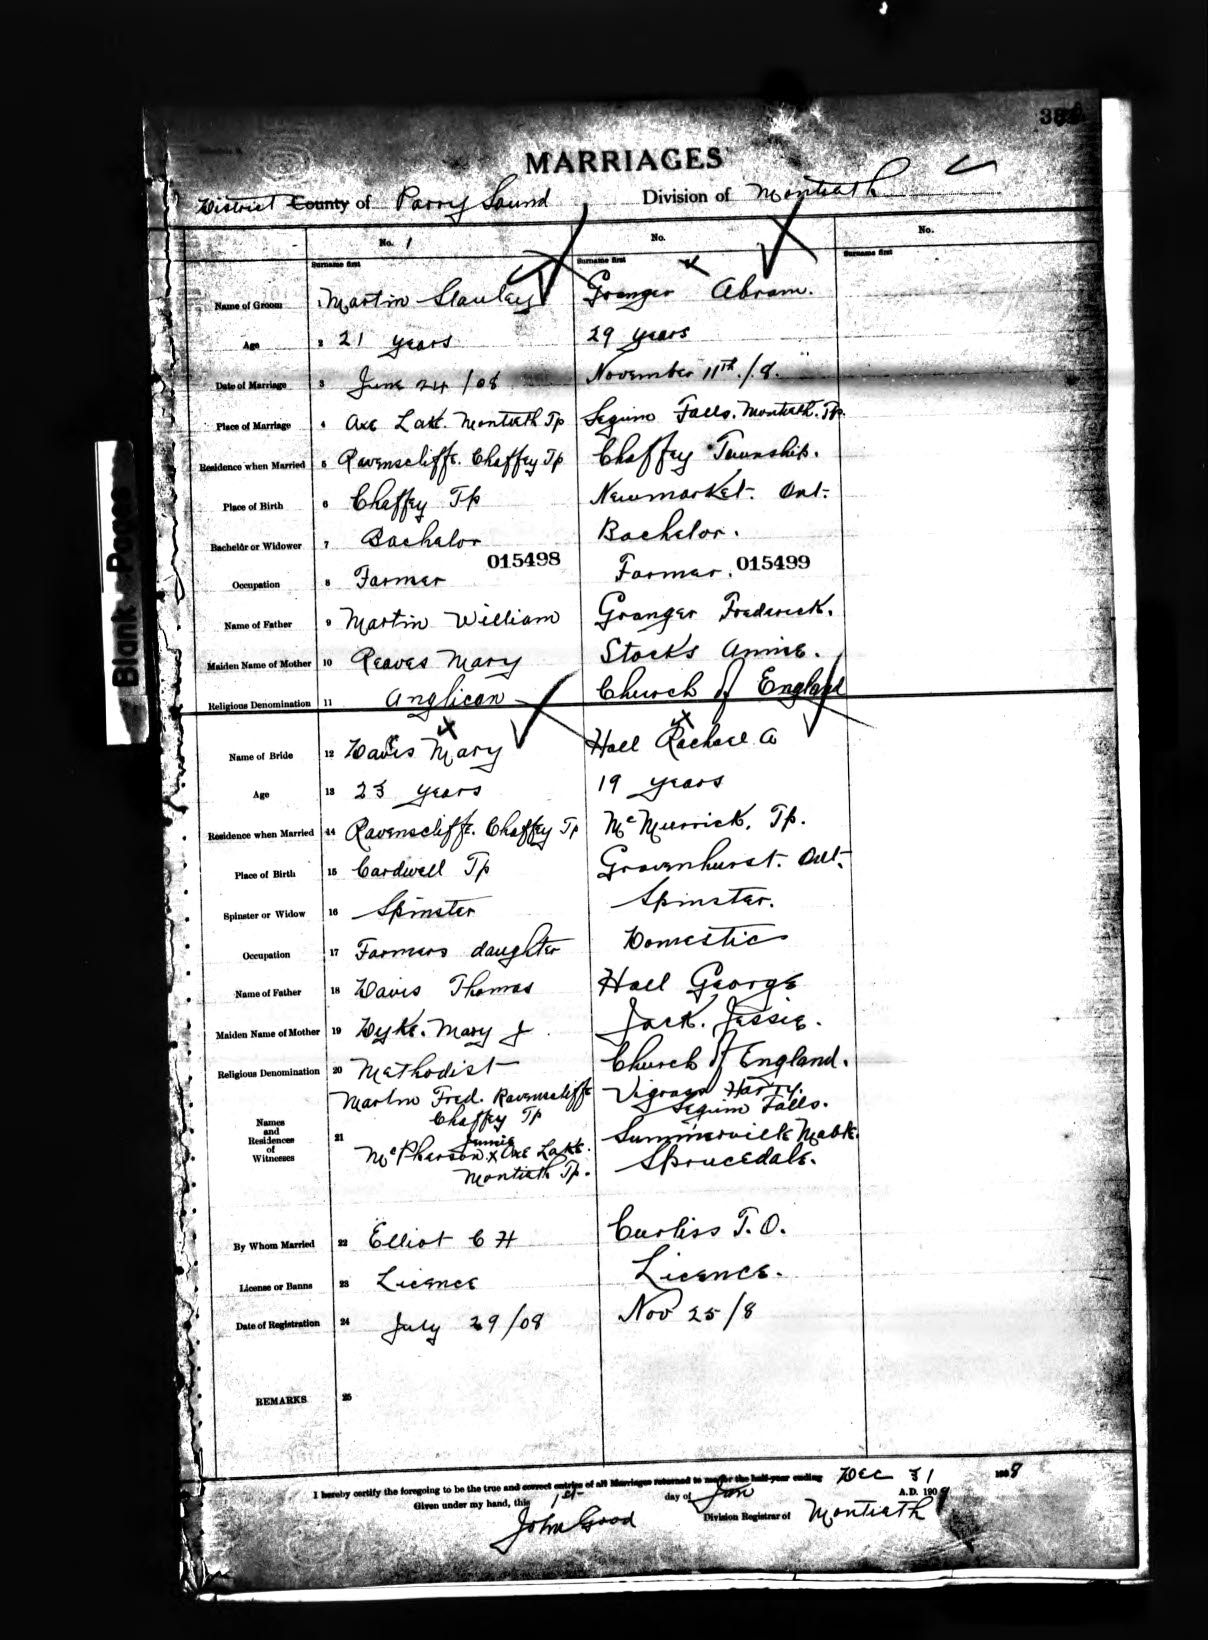 MARRIAGES
District County of Parry Sound Division of Monteith
No. 1 No. No.
Surname first Surname first Surname first
Name of Groom 1 Martin Stanley Granger Abram.
Age 2 21 years 29 years
Date of Marriage 3 June 24/08 November 11th/8.
Place of Marriage 4 Axe Lake. Monteith Tp Seguin Falls. Monteith. Tp.
Residence when Married 5 Ravenscliffe. Chaffey Tp Chaffey Township.
Place of Birth 6 Chaffey Tp Newmarket. Ont.
Bachelor or Widower 7 Bachelor Bachelor.
015498 015499
Occupation 8 Farmer Farmer.
Name of Father 9 Martin William Granger Frederick.
Maiden Name of Mother 10 Reaves Mary Stocks Annie.
Religious Denomination 11 Anglican Church of England
Name of Bride 12 Davis Mary Hall Rachael A
Age 13 23 years 19 years
Residence when Married 14 Ravenscliffe. Chaffey Tp McMurrick. Tp.
Place of Birth 15 Cardwell Tp Gravenhurst. Ont.
Spinster or Widow 16 Spinster Spinster.
Occupation 17 Farmers daughter Domestic
Name of Father 18 Davis Thomas Hall George
Maiden Name of Mother 19 Dyke. Mary J Jack. Jessie.
Religious Denomination 20 Methodist Church of England.
Names and Residences of Witnesses 21 Martin Fred. Ravenscliffe Harry.
Chaffey Tp Seguin Falls.
Jennie
McPherson x Axe Lake. Summerville Mable.
Monteith Tp. Sprucedale.
By Whom Married 22 Elliot C H Curtiss T. O.
License or Banns 23 Licence Licence.
Date of Registration 24 July 29/08 Nov 25/8
REMARKS 25
I hereby certify the foregoing to be the true and correct entries of all Marriages returned to me for the half-year ending Dec 31 1908
Given under my hand, this 1st day of Jan A.D. 1909
John Good Division Registrar of Monteith
Blank Pages